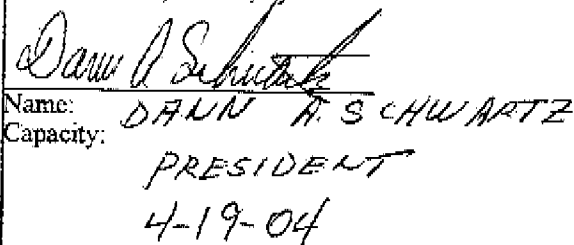 Dann A Schwartz
Name: DANN A. SCHWARTZ
Capacity:
PRESIDENT
4-19-04